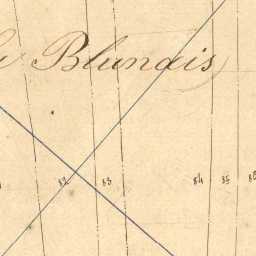 Blunais
82 83 84 85